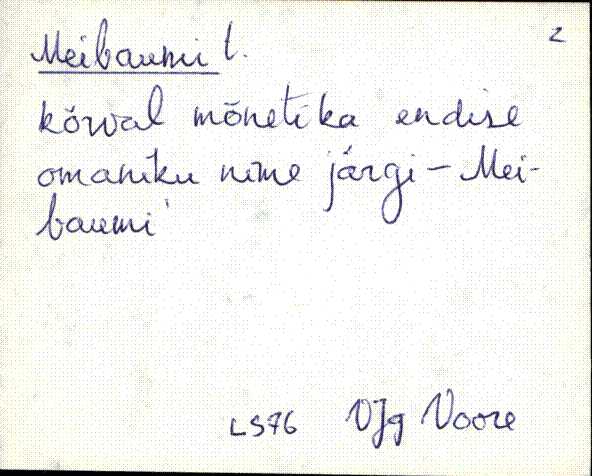 2
Meibaumi t.
kõrval mõnetika endise
omaniku nime järgi - Mei-
baumi
LS76 VJg Voore